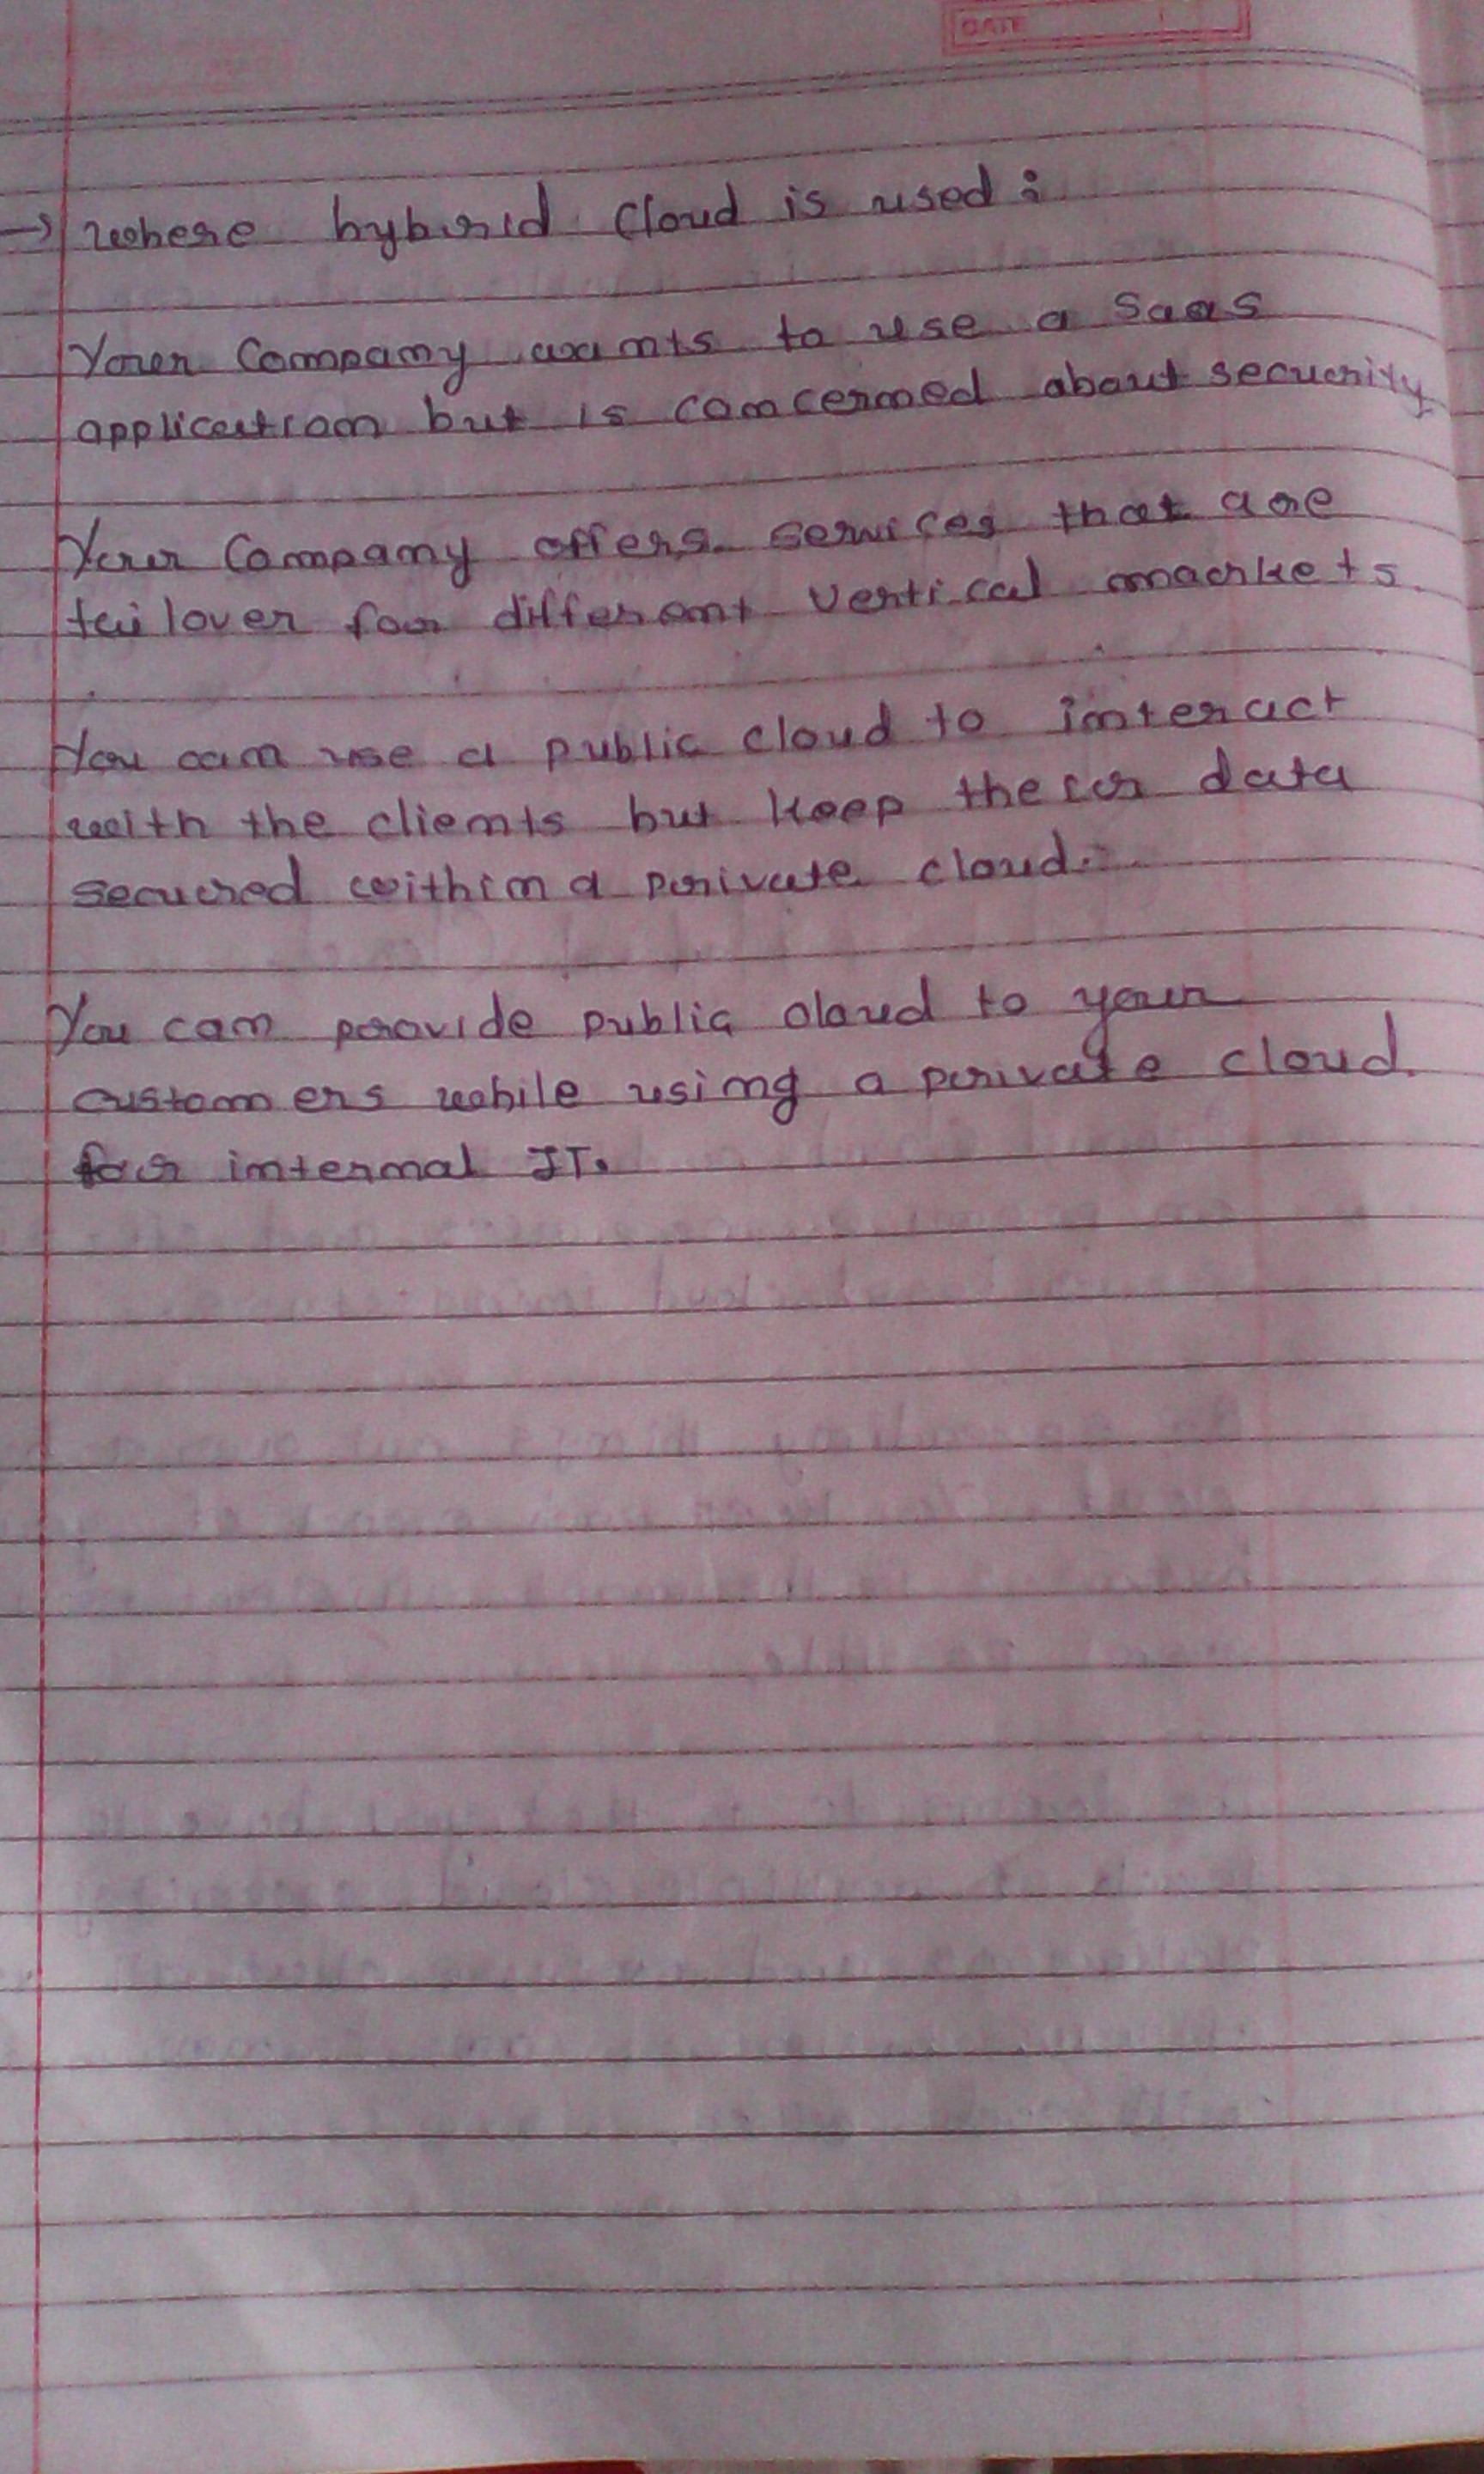 DATE
→ where hybrid cloud is used :
Your Company wants to use a SaaS
application but is concerned about security
Your Company offers services that are
tailover for different vertical markets
You can use a public cloud to interact
with the clients but keep their data
secured within a private cloud.
You can provide public cloud to your
customers while using a private cloud
for internal IT.